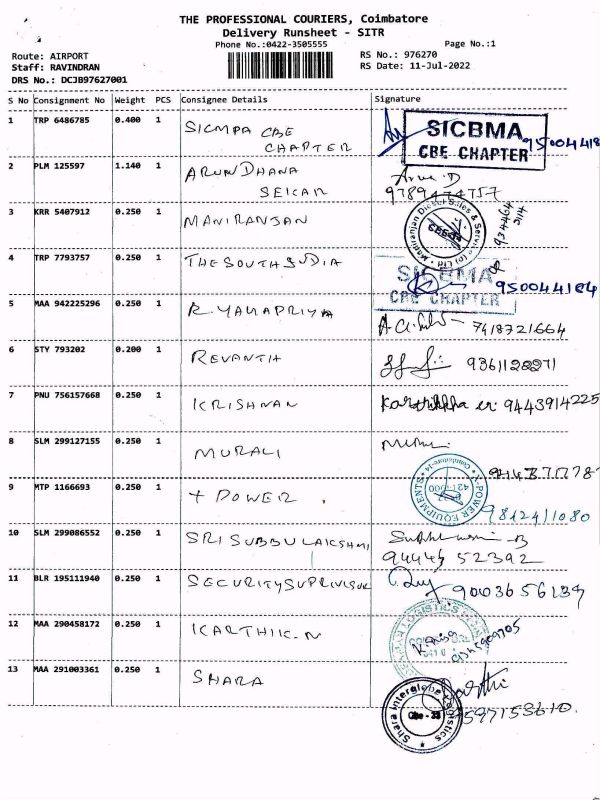 THE PROFESSIONAL COURIERS, Coimbatore
Delivery Runsheet - SITR
Phone No.:0422-3505555
Page No.:1
Route: AIRPORT
Staff: RAVINDRAN
DRS No.: DCJB97627001
RS No.: 976270
RS Date: 11-Jul-2022
S No Consignment No Weight PCS Consignee Details Signature
1 TRP 6486785 0.400 1 SICMPA CBE
CHAPTER
SICBMA
CBE CHAPTER
2 PLM 125597 1.140 1 ARUN DHANA
SEKAR
Arun.D
9789474757
3 KRR 5407912 0.250 1 MANIRANJAN
Maniranjan Diesel Sales & Service (P) Ltd
4 TRP 7793757 0.250 1 THE SOUTH
SICBMA
CBE CHAPTER
950044184
5 MAA 942225296 0.250 1 R. YAMAPRIYA
7418721664
6 STY 793202 0.200 1 REVANTH
7 PNU 756157668 0.250 1 KRISHNAN
9443914225
8 SLM 299127155 0.250 1 MURALI
9 MTP 1166693 0.250 1 + POWER
X-POWER EQUIPMENTS
Coimbatore-14
9812411080
10 SLM 299086552 0.250 1 SRI SUBBULAKSHMI
94445 52392
11 BLR 195111940 0.250 1 SECURITY
12 MAA 290458172 0.250 1 KARTHIK.N
LOGISTICS
13 MAA 291003361 0.250 1 SHARA
Share Interglobe Logistics
Cbe - 33